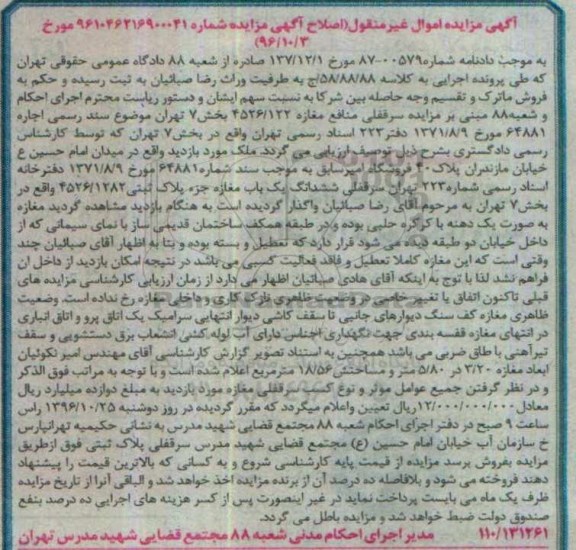 آگهی مزایده اموال غیرمنقول(اصلاح آگهی مزایده شماره ۹۶۱۰۴۶۲۱۶۹۰۰۰۴۱ مورخ
۹۶/۱۰/۳)
به موجب دادنامه شماره۰۰۵۷۹-۸۷ مورخ ۱۳۷/۱۲/۱ صادره از شعبه ۸۸ دادگاه عمومی حقوقی تهران
که طی پرونده اجرایی به کلاسه ۵۸/۸۸/۸۸/اج به طرفیت وراث رضا صبائیان به ثبت رسیده و حکم به
فروش ماترک و تقسیم وجه حاصله بین شرکا به نسبت سهم ایشان و دستور ریاست محترم اجرای احکام
و شعبه۸۸ مبنی بر مزایده سرقفلی منافع مغازه ۴۵۲۶/۱۲۲ بخش۷ تهران موضوع سند رسمی اجاره
۶۴۸۸۱ مورخ ۱۳۷۱/۸/۹ دفتر۲۲۳ اسناد رسمی تهران واقع در بخش۷ تهران که توسط کارشناس
رسمی دادگستری بشرح ذیل توصیف ارزیابی می گردد. ملک مورد بازدید واقع در میدان امام حسین ع
خیابان مازندران پلاک ۴۰ فروشگاه امیرسابق به موجب سند شماره۶۴۸۸۱ مورخ ۱۳۷۱/۸/۹ دفترخانه
اسناد رسمی شماره۲۲۳ تهران سرقفلی ششدانگ یک باب مغازه جزء پلاک ثبتی۴۵۲۶/۱۲۸۲ واقع در
بخش۷ تهران به مرحوم آقای رضا صبائیان واگذار گردیده است به هنگام بازدید مشاهده گردید مغازه
به صورت یک دهنه با کرکره حلبی بوده و در طبقه همکف ساختمان قدیمی ساز با نمای سیمانی که از
داخل خیابان دو طبقه دیده می شود قرار دارد که تعطیل و بسته بوده و بنا به اظهار آقای صبائیان چند
وقتی است که این مغازه کاملا تعطیل و فاقد فعالیت کسبی می باشد در نتیجه امکان بازدید از داخل ان
فراهم نشد لذا با توج به اینکه آقای هادی صبائیان اظهار می دارد از زمان ارزیابی کارشناسی مزایده های
قبلی تاکنون اتفاق یا تغییر خاصی در وضعیت ظاهری نازک کاری و داخلی مغازه رخ نداده است. وضعیت
ظاهری مغازه کف سنگ دیوارهای جانبی تا سقف کاشی دیوار انتهایی سرامیک یک اتاق پرو و اتاق انباری
در انتهای مغازه قفسه بندی جهت نگهداری اجناس دارای آب لوله کشی انشعاب برق دستشویی و سقف
تیرآهنی با طاق ضربی می باشد همچنین به استناد تصویر گزارش کارشناسی آقای مهندس امیر نکوئیان
ابعاد مغازه ۳/۲۰ در ۵/۸۰ متر و مساحتش ۱۸/۵۶ مترمربع اعلام شده است و با توجه به مراتب فوق الذکر
و در نظر گرفتن جمیع عوامل موثر و نوع کسب سرقفلی مغازه مورد بازدید به مبلغ دوازده میلیارد ریال
معادل ۱۲/۰۰۰/۰۰۰/۰۰۰ریال تعیین واعلام میگردد که مقرر گردیده در روز دوشنبه ۱۳۹۶/۱۰/۲۵ راس
ساعت ۹ صبح در دفتر اجرای احکام شعبه ۸۸ مجتمع قضایی شهید مدرس به نشانی حکیمیه تهرانپارس
خ سازمان آب خیابان امام حسین (ع) مجتمع قضایی شهید مدرس سرقفلی پلاک ثبتی فوق ازطریق
مزایده بفروش برسد مزایده از قیمت پایه کارشناسی شروع و به کسانی که بالاترین قیمت را پیشنهاد
دهند فروخته می شود و بلافاصله ده درصد آن از برنده مزایده اخذ خواهد شد و الباقی آنرا از تاریخ مزایده
ظرف یک ماه می بایست پرداخت نماید در غیر اینصورت پس از کسر هزینه های اجرایی ده درصد بنفع
صندوق دولت ضبط خواهد شد و مزایده باطل می گردد.
۱۱۰/۱۳۱۲۶۱ مدیر اجرای احکام مدنی شعبه ۸۸ مجتمع قضایی شهید مدرس تهران